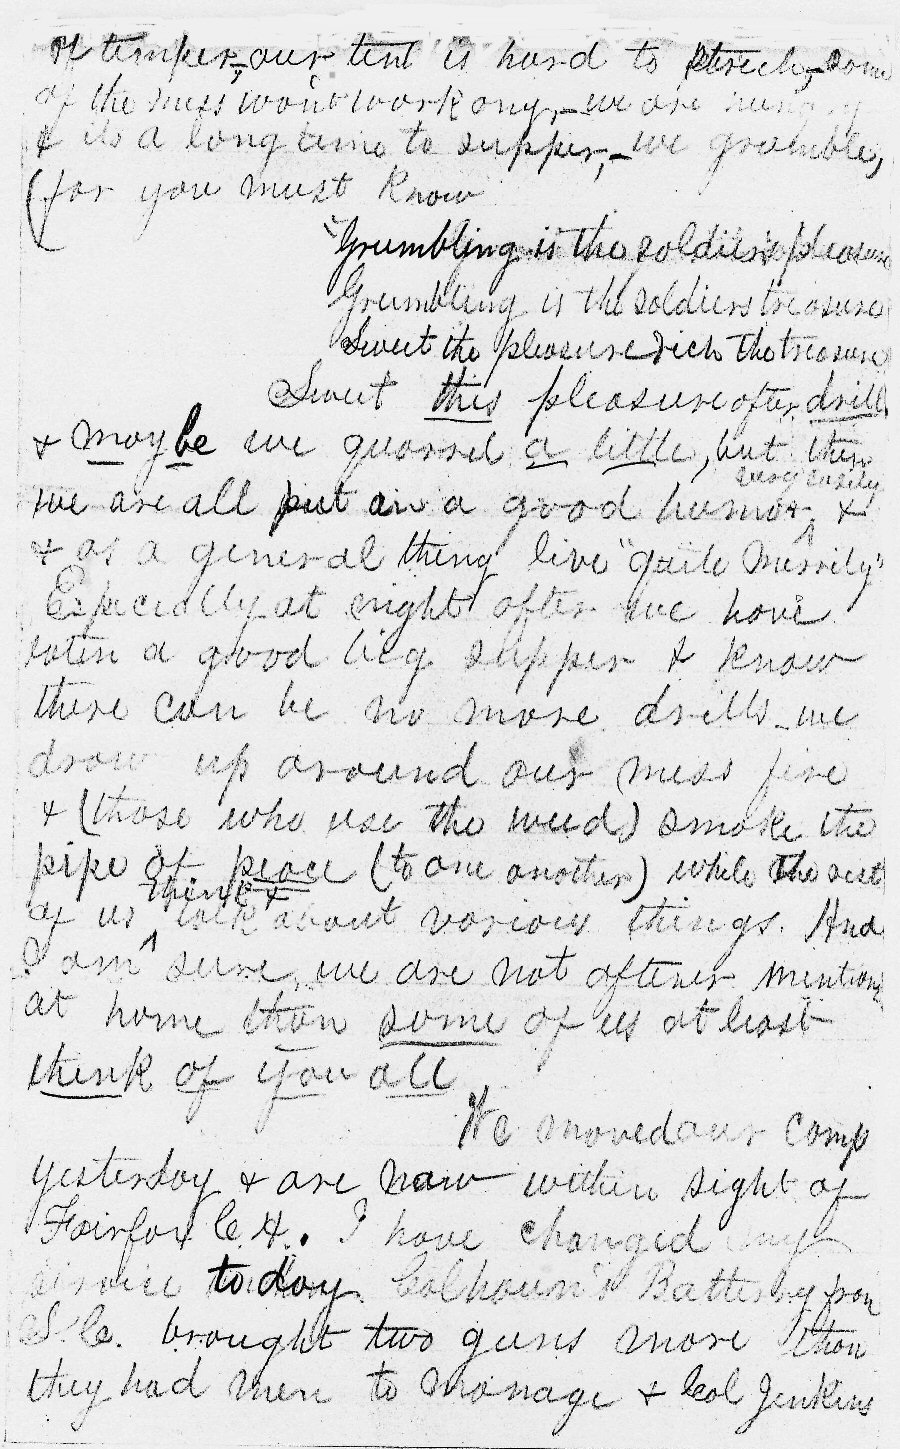 of temper, our tent is hard to strech, some
of the mess wont work any, – we are hungry
& its a long time to supper, – we grumble,
(for you must know
"Grumbling is the soldiers pleasure
Grumbling is the soldiers treasure
Sweet the pleasure rich the treasure
Sweet this pleasure after drill
& may be we quarrel a little, but then
very easily
we are all put in a good humor &
& as a general thing live "quite merrily"
Especially at night after we have
eaten a good big supper & know
there can be no more drills – we
draw up around our mess fire
& (those who use the weed) smoke the
pipe of peace (to one another) while the rest
think &
of us talk about various things. And
I am sure, we are not oftener mentiond
at home than some of us at least
think of you all
We moved our camp
yesterday & are now within sight of
Fairfax C.H. I have changed my
service today. Calhoun's Battery from
S.C. brought two guns more than
they had men to manage & Col Jenkins